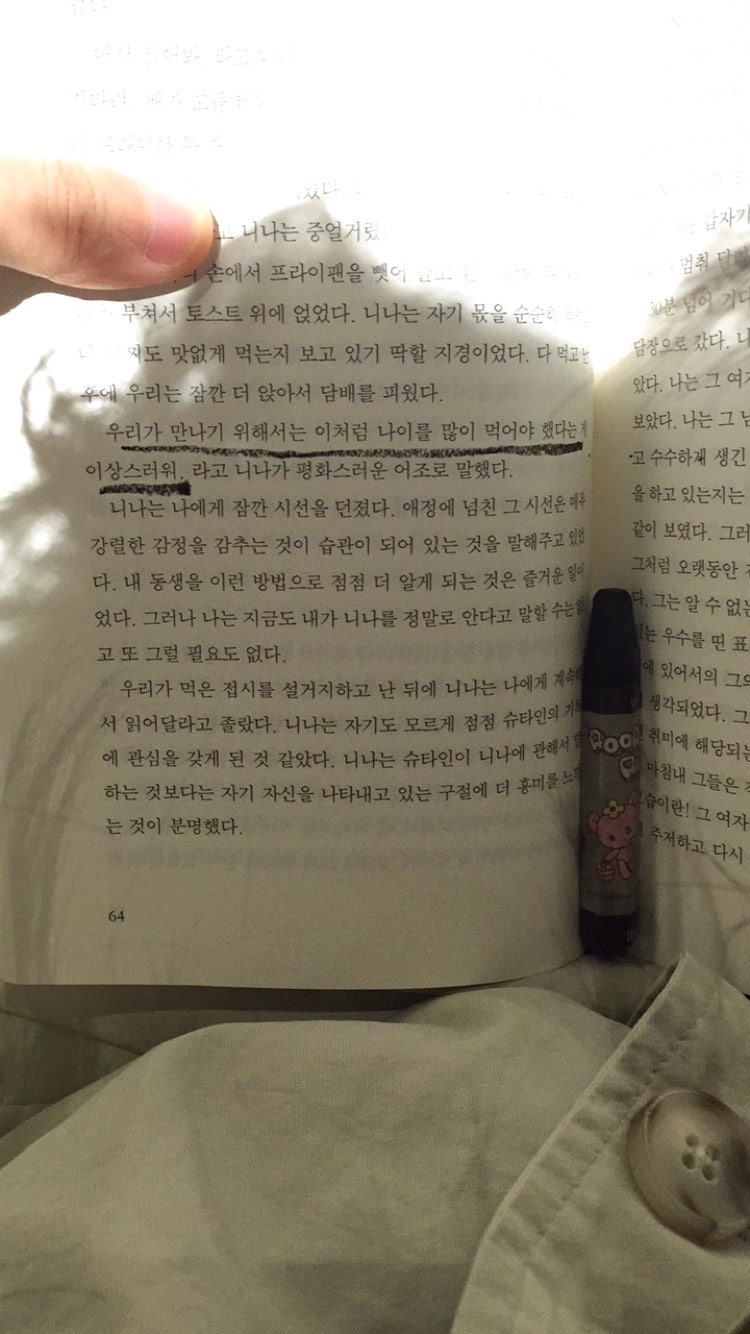 니나는 중얼거렸
손에서 프라이팬을 뺏어
부쳐서 토스트 위에 얹었다. 니나는 자기 몫을 순순히
맛없게 먹는지 보고 있기 딱할 지경이었다. 다 먹고 난
후에 우리는 잠깐 더 앉아서 담배를 피웠다.
우리가 만나기 위해서는 이처럼 나이를 많이 먹어야 했다는 게
이상스러워, 라고 니나가 평화스러운 어조로 말했다.
니나는 나에게 잠깐 시선을 던졌다. 애정에 넘친 그 시선은 매우
강렬한 감정을 감추는 것이 습관이 되어 있는 것을 말해주고 있었
다. 내 동생을 이런 방법으로 점점 더 알게 되는 것은 즐거운 일이
었다. 그러나 나는 지금도 내가 니나를 정말로 안다고 말할 수는 없
고 또 그럴 필요도 없다.
우리가 먹은 접시를 설거지하고 난 뒤에 니나는 나에게 계속해
서 읽어달라고 졸랐다. 니나는 자기도 모르게 점점 슈타인의 기록
에 관심을 갖게 된 것 같았다. 니나는 슈타인이 니나에 관해서 말
하는 것보다는 자기 자신을 나타내고 있는 구절에 더 흥미를 느끼
는 것이 분명했다.
64
갑자기
멈춰
넘어
담장으로 갔다.
았다. 나는 그
보았다. 나는 그
고 수수하게 생긴
을 하고 있는지는
같이 보였다. 그러
그처럼 오랫동안
다. 그는 알 수 없는
있는 우수를 띤 표
에 있어서의 그의
생각되었다. 그
취미에 해당되는
마침내 그들은
그 여자
주저하고 다시